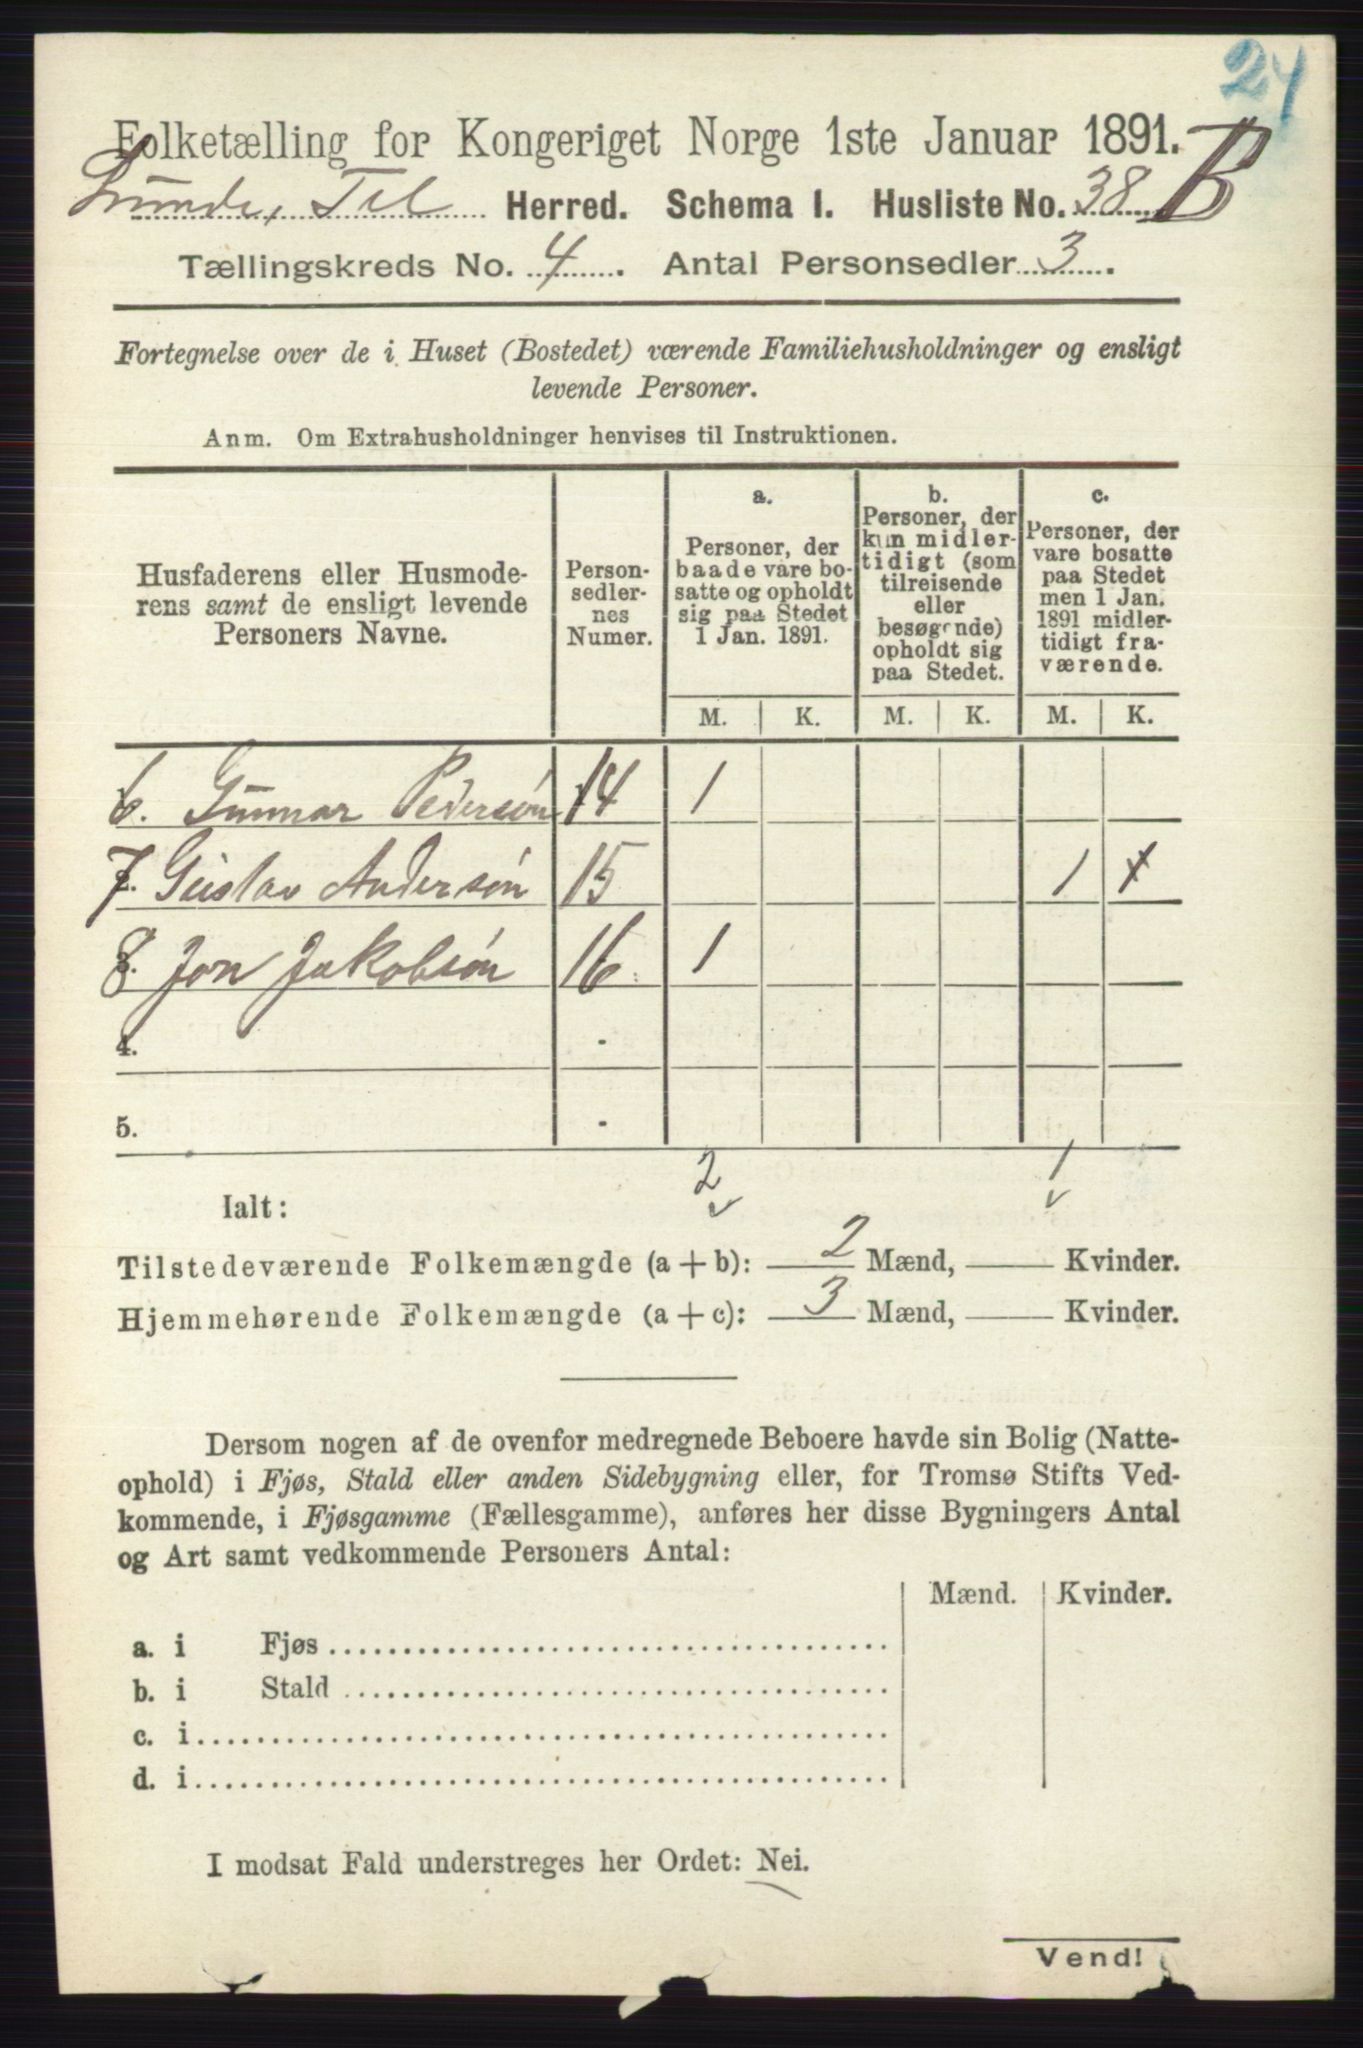 24
Folketælling for Kongeriget Norge 1ste Januar 1891.
Lunde, Tel Herred. Schema I. Husliste No. 38 B
Tællingskreds No. 4. Antal Personsedler 3.
Fortegnelse over de i Huset (Bostedet) værende Familiehusholdninger og ensligt
levende Personer.
Anm. Om Extrahusholdninger henvises til Instruktionen.
Husfaderens eller Husmode-
rens samt de ensligt levende
Personers Navne.
Person-
sedler-
nes
Numer.
a.
Personer, der
baade vare bo-
satte og opholdt
sig paa Stedet
1 Jan. 1891.
b.
Personer, der
kun midler-
tidigt (som
tilreisende
eller
besøgende)
opholdt sig
paa Stedet.
c.
Personer, der
vare bosatte
paa Stedet
men 1 Jan.
1891 midler-
tidigt fra-
værende.
M. K. M. K. M. K.
6. Gunnar Pedersøn 14 1
7. Gustav Andersøn 15 1 1
8. Jon Jakobsøn 16 1
4. -
5. -
2 1
Ialt:
Tilstedeværende Folkemængde (a + b): 2 Mænd, Kvinder.
Hjemmehørende Folkemængde (a + c): 3 Mænd, Kvinder.
Dersom nogen af de ovenfor medregnede Beboere havde sin Bolig (Natte-
ophold) i Fjøs, Stald eller anden Sidebygning eller, for Tromsø Stifts Ved-
kommende, i Fjøsgamme (Fællesgamme), anføres her disse Bygningers Antal
og Art samt vedkommende Personers Antal:
Mænd. Kvinder.
a. i Fjøs
b. i Stald
c. i
d. i
I modsat Fald understreges her Ordet: Nei.
Vend!